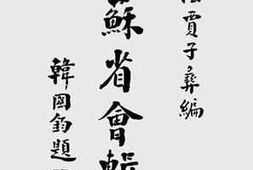 賈子彝編
蘇省會輯
韓國鈞題